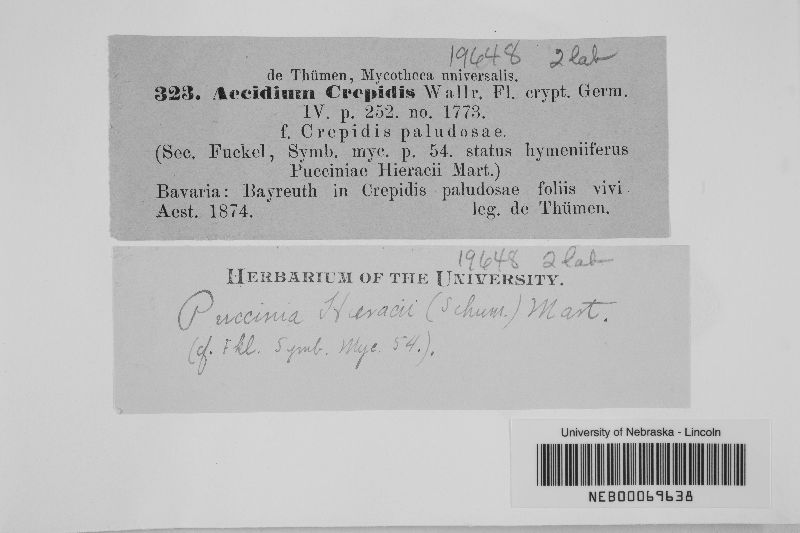 19648 2 lab
de Thümen, Mycotheca universalis.
323. Aecidium Crepidis Wallr. Fl. crypt. Germ.
IV. p. 252. no. 1773.
f. Crepidis paludosae.
(Sec. Fuckel, Symb. myc. p. 54. status hymeniiferus
Pucciniae Hieracii Mart.)
Bavaria: Bayreuth in Crepidis paludosae foliis vivi.
Aest. 1874. leg. de Thümen.
19648 2 lab
HERBARIUM OF THE UNIVERSITY.
Puccinia Hieracii (Schum.) Mart.
(cf. Fkl. Symb. Myc. 54.).
University of Nebraska - Lincoln
NEB00069638